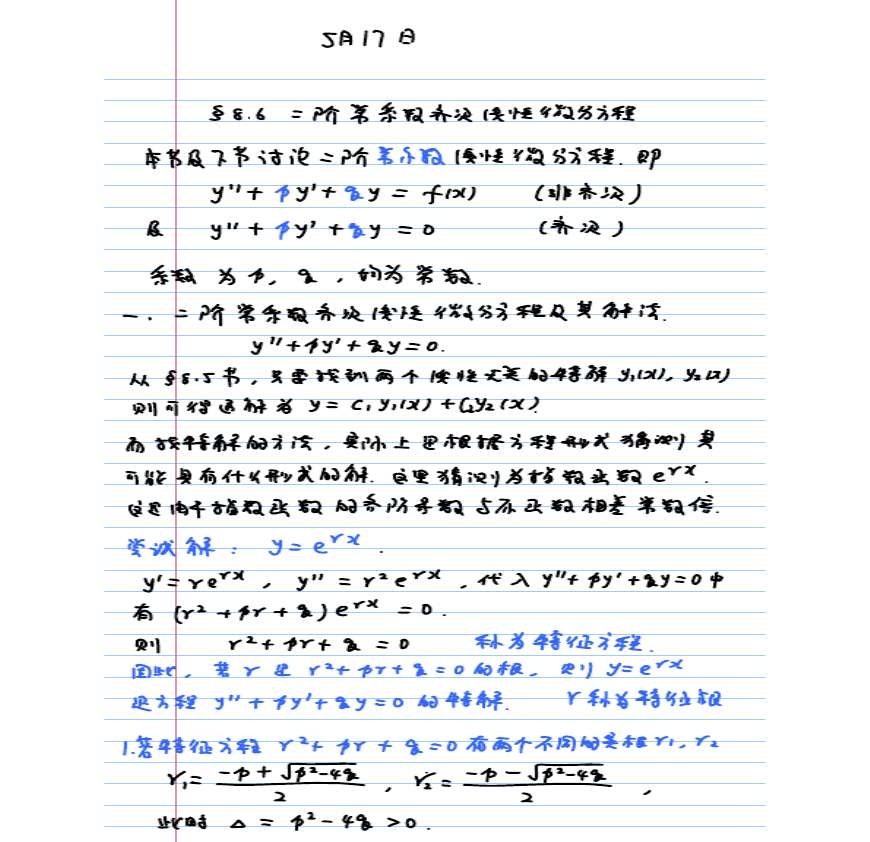 5月17日
§8.6 二阶常系数齐次线性微分方程
本节及下节讨论二阶常系数线性微分方程.即
y''+py'+qy=f(x) (非齐次)
及 y''+py'+qy=0 (齐次)
系数为p,q,均为常数.
一.二阶常系数齐次线性微分方程及其解法.
y''+py'+qy=0.
从§8.5节,只要找到两个线性无关的特解y₁(x),y₂(x)
则可得通解为 y=C₁y₁(x)+C₂y₂(x)
而找特解的方法,实际上是根据方程形式猜测其
可能具有什么形式的解.这里猜测为指数函数e^{rx}.
这是由于指数函数的各阶导数与原函数相差常数倍.
尝试解: y=e^{rx}.
y'=re^{rx}, y''=r²e^{rx},代入y''+py'+qy=0中
有 (r²+pr+q)e^{rx}=0.
则 r²+pr+q=0 称为特征方程.
因此,若r是r²+pr+q=0的根,则y=e^{rx}
是方程y''+py'+qy=0的特解. r称为特征根
1.若特征方程r²+pr+q=0有两个不同的实根r₁,r₂
r₁=\frac{-p+\sqrt{p²-4q}}{2}, r₂=\frac{-p-\sqrt{p²-4q}}{2},
此时 Δ=p²-4q>0.